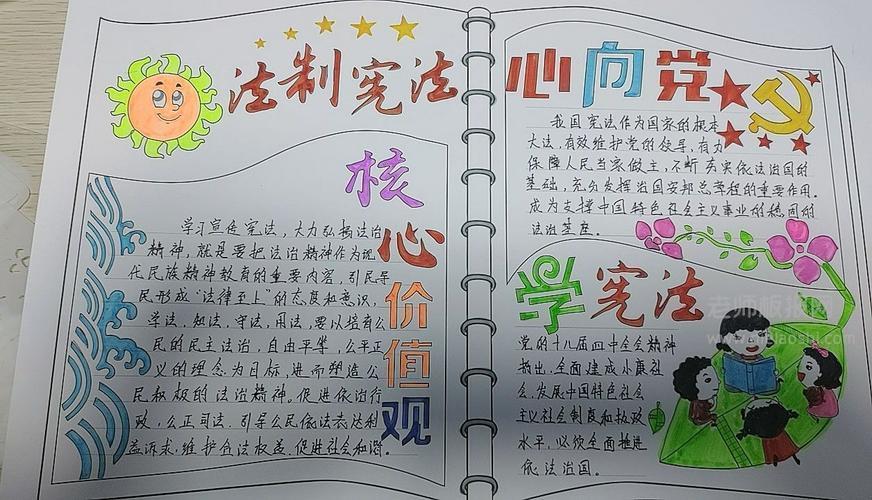 法制宪法
核心价值观
学习宣传宪法，大力弘扬法治
精神，就是要把法治精神作为现
代民族精神教育的重要内容，引民导
民形成“法律至上”的态度和意识，
学法，知法，守法，用法，要以培育公
民的民主法治，自由平等，公平正
义的理念为目标，进而塑造公
民积极的法治精神。促进依治行
政，公正司法，引导公民依法表达利
益诉求，维护合法权益，促进社会和谐。
心向党
我国宪法作为国家的根本
大法，有效维护党的领导，有力
保障人民当家做主，不断夯实依法治国的
基础，充分发挥治国安邦总章程的重要作用。
成为支撑中国特色社会主义事业的稳固的
法治基座。
学宪法
党的十八届四中全会精神
指出，全面建成小康社
会，发展中国特色社会
主义社会制度和执政
水平，必须全面推进
依法治国。
老师板报网